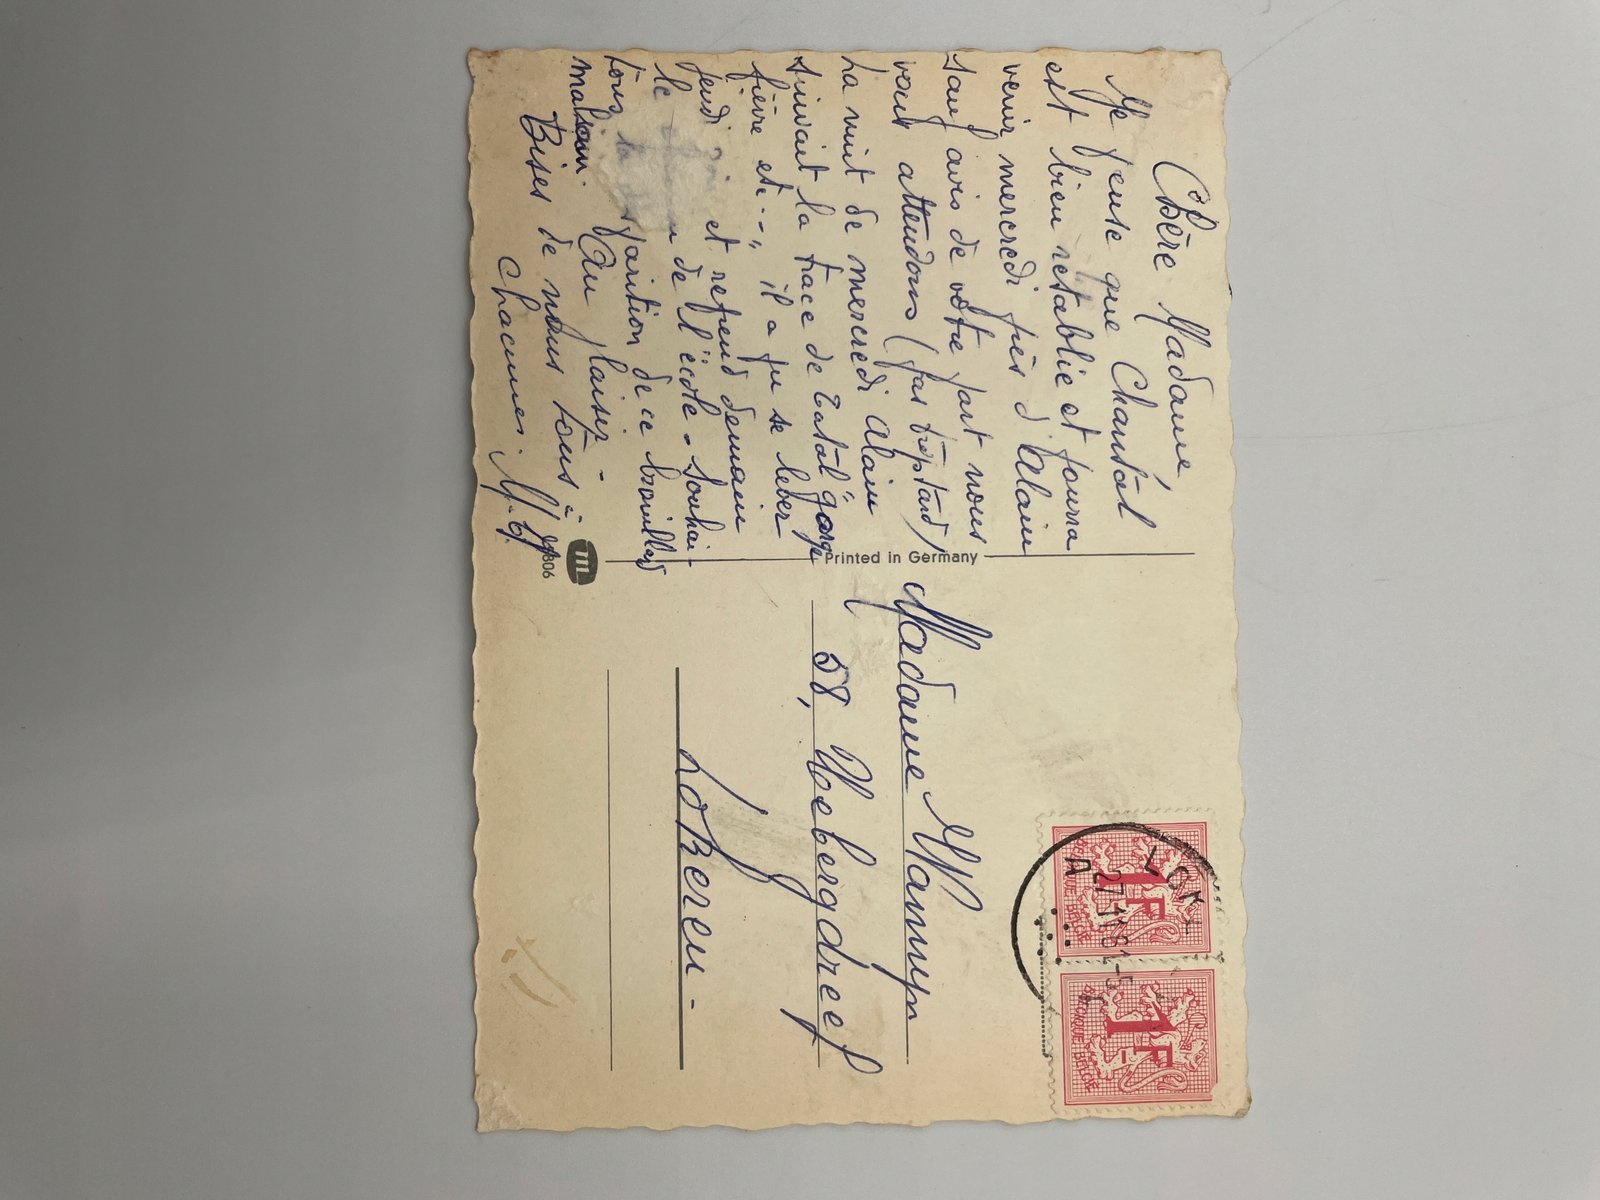 Chère Madame
Je pense que Chantal
est bien rétablie et pourra
venir mercredi près d'Alain
sauf avis de votre part nous
vous attendons (pas trop tard)
La nuit de mercredi Alain
suivait la trace de Tatal "gorge
fièvre etc--, il a pu se lever
jeudi et reprend demain
le de l'école - Souhai-
tons la de ce brouillard
malsain.
Au plaisir -
Bises de nous tous à
chacune.
Printed in Germany
806
Madame Wannyn
58, Uebergdreef
Lokeren -
LOK
27-11-6
A
1F
BELGIQUE BELGIE
1F
BELGIQUE BELGIE